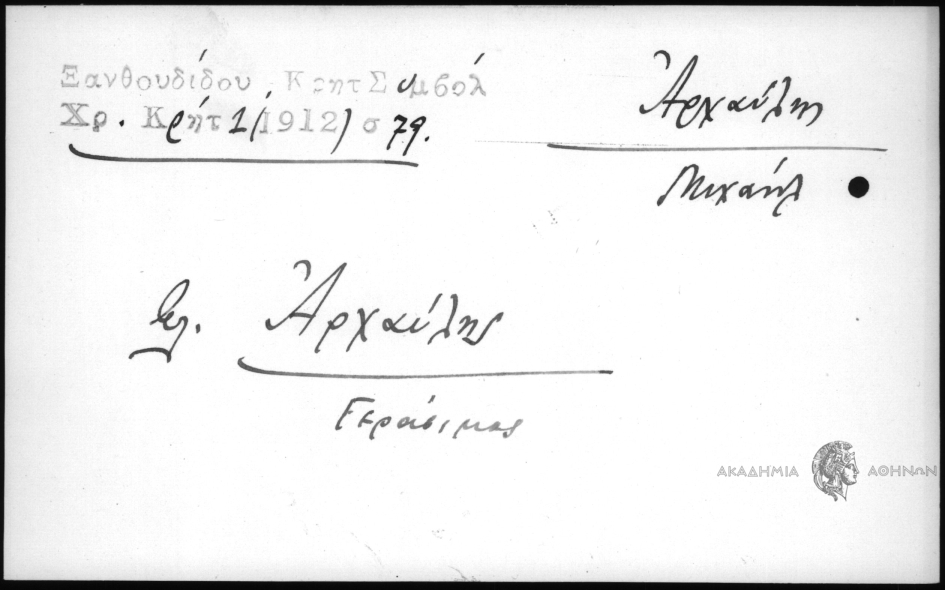 Ξανθουδίδου Κρητ Συμβόλ
Χρ. Κρήτ 1 (1912) σ 79.
Ἀρχαύλης
Μιχαήλ
βλ. Ἀρχαύλης
Γεράσιμος
ΑΚΑΔΗΜΙΑ ΑΘΗΝΩΝ